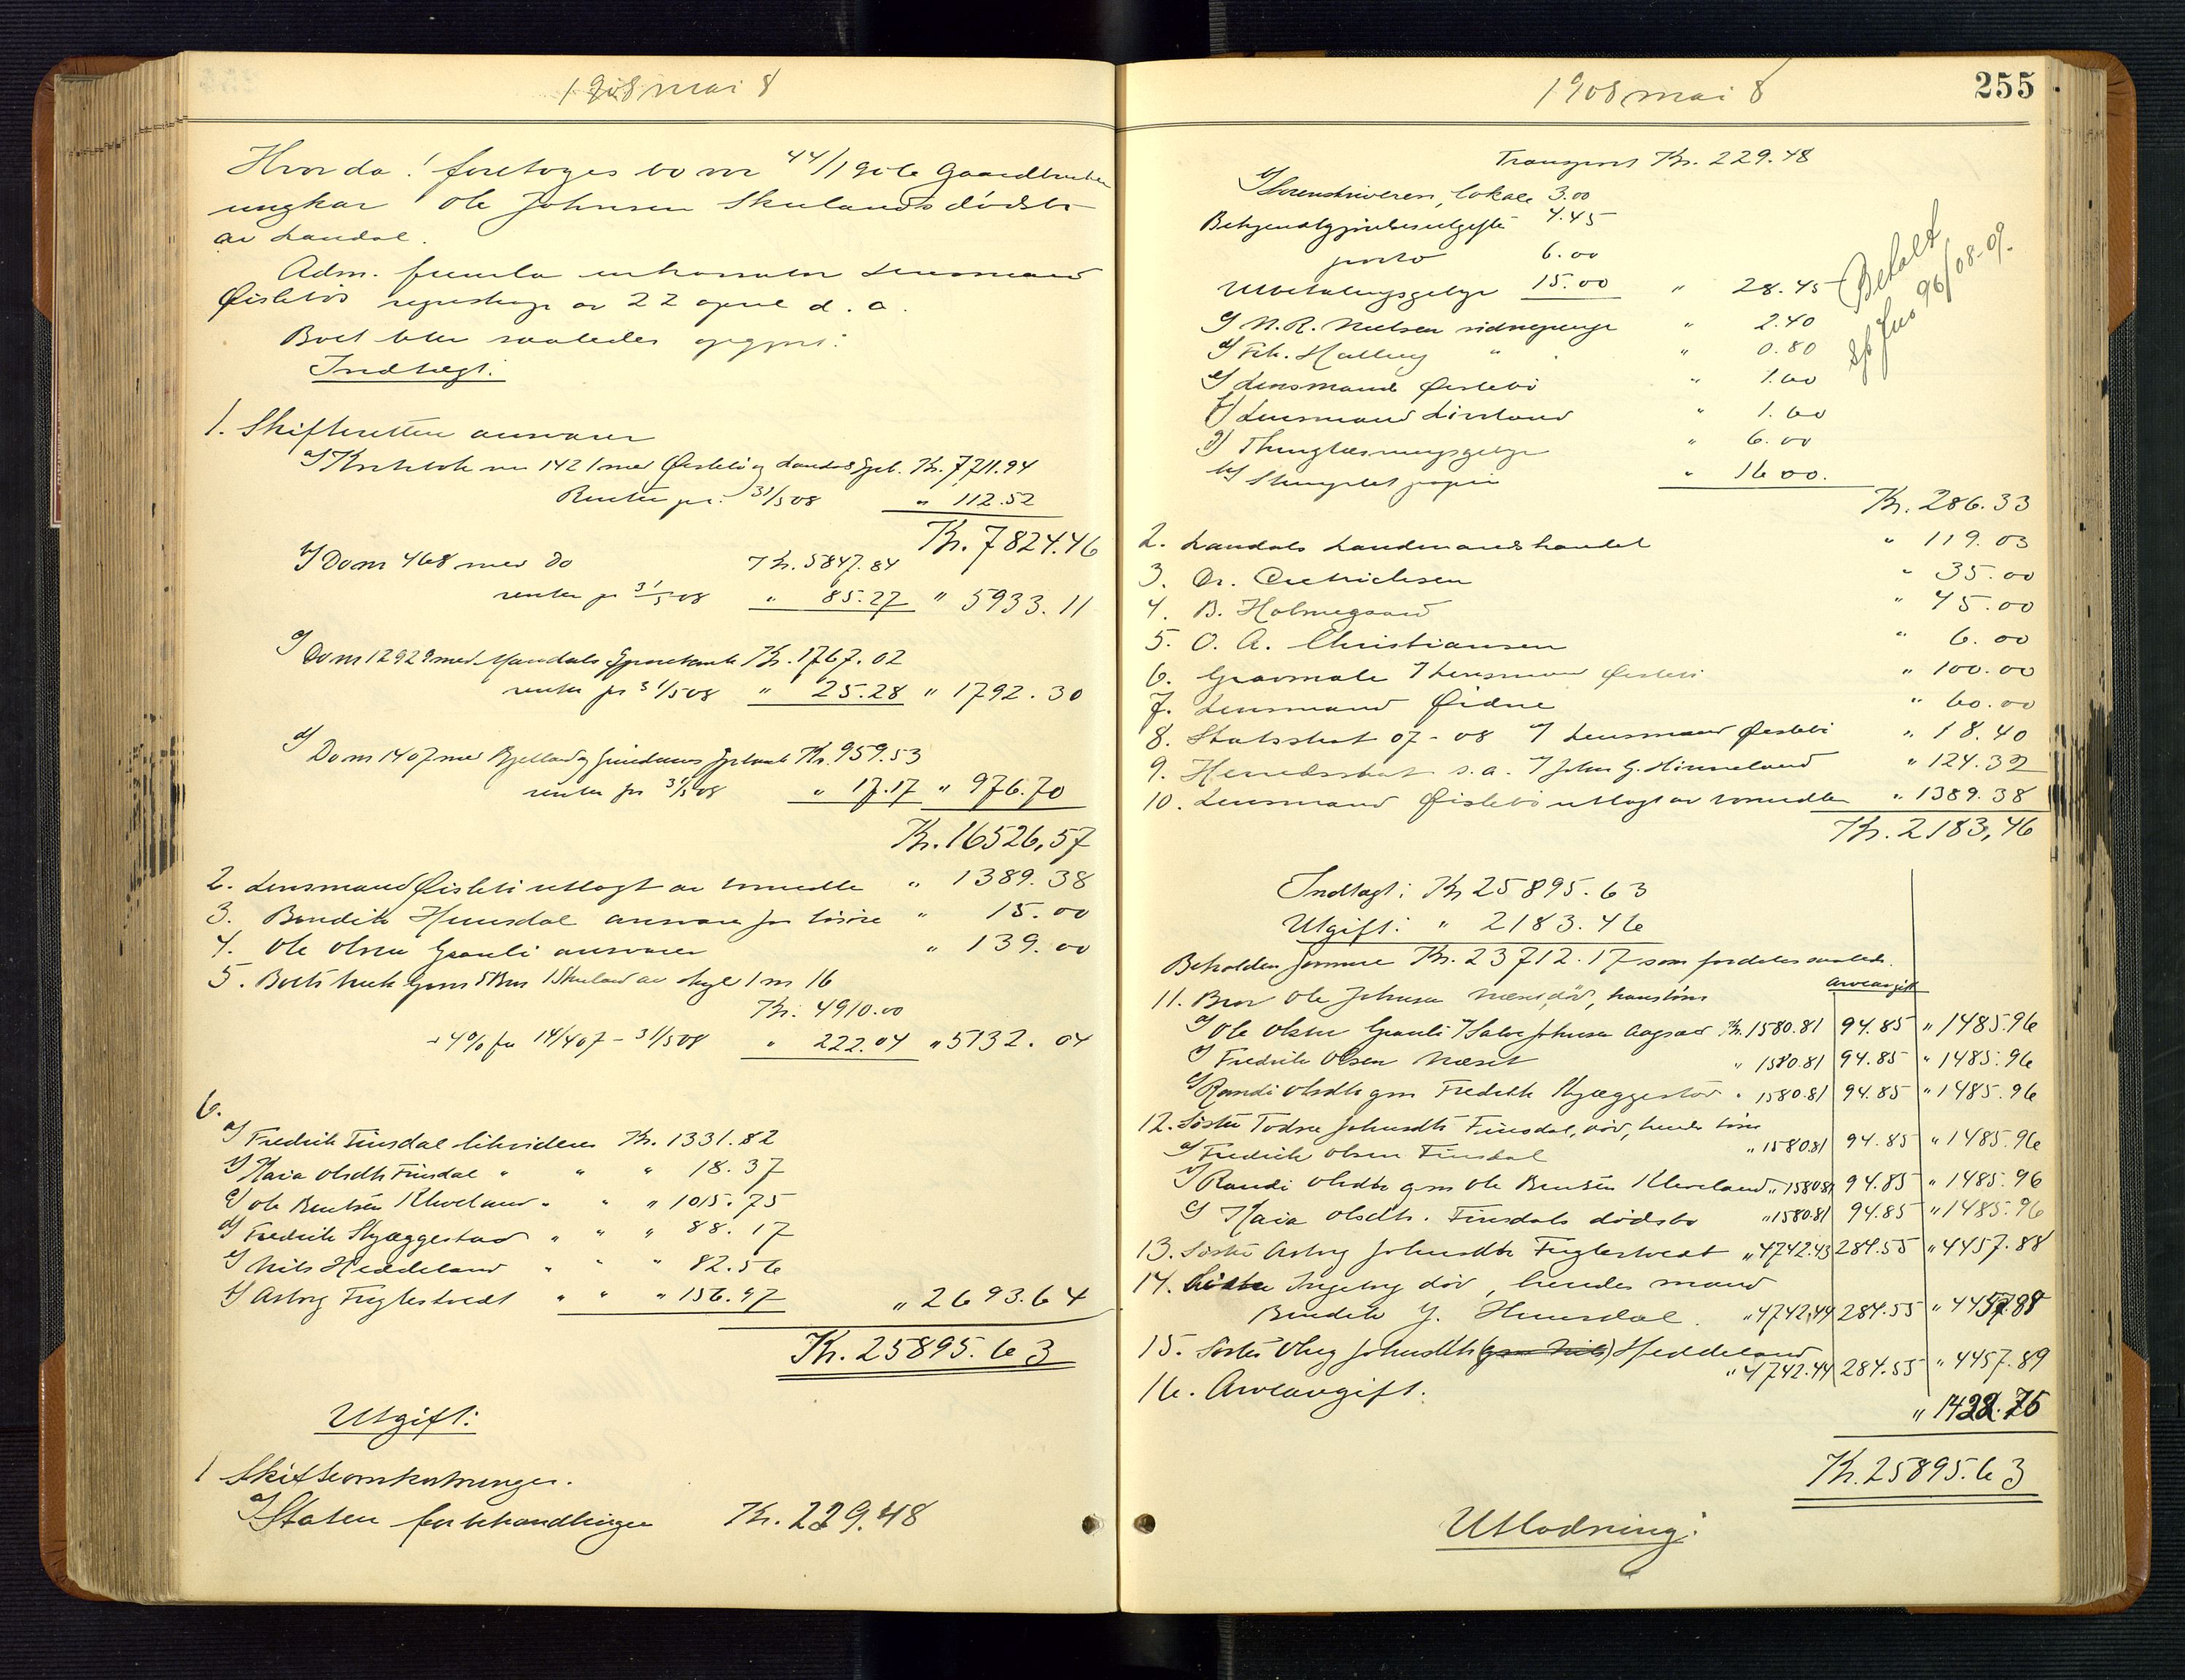 1908 mai 8
Hvorda: foretoges bo nr 44/1906 Gaardbruker
ungkar Ole Johnsen Skulands dødsbo
av Laudal.
Adm. fremla inkassator Lensmand
Øislebøs regnskap av 22 april d. a.
Boet blev saaledes opgjort:
Indtægt:
1. Skifteretten ansvarer
a) Kontrabok nr 1421 med Øislebø og Laudals Spb. Kr. 7711.94
Renter pr. 31/5 08 " 112.52
Kr. 7824.46
b) Do nr 468 med do Kr. 5847.84
renter pr 31/5 08 " 85.27 " 5933.11
c) Do nr 12929 med Mandals Sparebank Kr. 1767.02
renter pr 31/5 08 " 25.28 " 1792.30
d) Do nr 1407 med Bjelland og Grindums Spbank Kr. 959.53
renter pr 31/5 08 " 17.17 " 976.70
Kr. 16526,57
2. Lensmand Øislebø utlagt av bomidler " 1389.38
3. Bendik Heunsdal ansvarer for løsøre " 15.00
4. Ole Olsen Graali ansvarer " 139.00
5. Boets bruk Gnr 5 Bnr 1 Skuland av skyl 1 m 16
Kr. 4910.00
+ 4% fra 14/4 07 - 31/5 08 " 222.04 " 5132.04
6.
a) Fredrik Finsdal likviderer Kr. 1331.82
b) Maia Olsdtr Finsdal " " " 18.37
c) Ole Bentsen Kleveland " " " 1015.75
d) Fredrik Skjæggestad " " " 88.17
e) Nils Heddeland " " " 82.56
f) Asborg Fuglestvedt " " " 156.97 " 2693.64
Kr. 25895.63
Utgift:
1 Skifteomkostninger.
a) Staten for behandlingen Kr. 229.48
1908 mai 8
255
Transport Kr. 229.48
b) Sorenskriveren, lokale 3.00
Bekjendtgjørelsesutgifter 4.45
porto 6.00
Utbetalingsgebyr 15.00 " 28.45
c) N. R. Nielsen vidnepenge " 2.40
d) Frk. Halling " " 0.80
e) Lensmand Øislebø " 1.60
f) Lensmand Livland " 1.60
g) Thinglæsningsgebyr " 6.00
h) Stemplet papir " 16 00.
Kr. 286.33
Betalt
96/08-09.
2. Laudals Landmandshandel " 119.03
3. Dr. Dietrichsen " 35.00
4. B. Holmegaard " 45.00
5. O. A. Christiansen " 6.00
6. Gravmæle v/ Lensmand Øislebø " 100.00
7. Lensmand Øidne " 60.00
8. Statsskat 07-08 v/ Lensmand Øislebø " 18.40
9. Heredsskat s. a. v/ John G. Hinneland " 124.32
10. Lensmand Øislebø utlagt av bomidler " 1389.38
Kr. 2183,46
Indtægt: Kr 25895.63
Utgift: " 2183.46
Beholden formue Kr. 23712.17 som fordeles saaledes.
Arveavgift
11. Bror Ole Johnsen Næset, død, hans børn
a) Ole Olsen Graali v/ Salve Johnsen Aagsæd Kr. 1580.81 94.85 " 1485.96
b) Fredrik Olsen Næset " 1580.81 94.85 " 1485.96
c) Randi Olsdtr gm Fredrik Skjæggestad " 1580.81 94.85 " 1485.96
12. Søster Todne Johnsdtr Finsdal, død, hendes børn
a) Fredrik Olsen Finsdal " 1580.81 94.85 " 1485.96
b) Randi Olsdtr gm Ole Bentsen Kleveland " 1580.81 94.85 " 1485.96
c) Maia Olsdtr. Finsdals dødsbo " 1580.81 94.85 " 1485.96
13. Søster Asborg Johnsdtr Fuglestvedt " 4742.43 284.55 " 4457.88
14. Søster Ingeborg død, hendes mand
Bendik J. Heunsdal. " 4742,44 284.55 " 4457.89
15. Søster Oleg Johnsdtr (gm Nils) Heddeland
" 4742.44 284.55 " 4457.89
16. Arveavgift. " 1422.75
Kr. 25895.63
Utlodning: